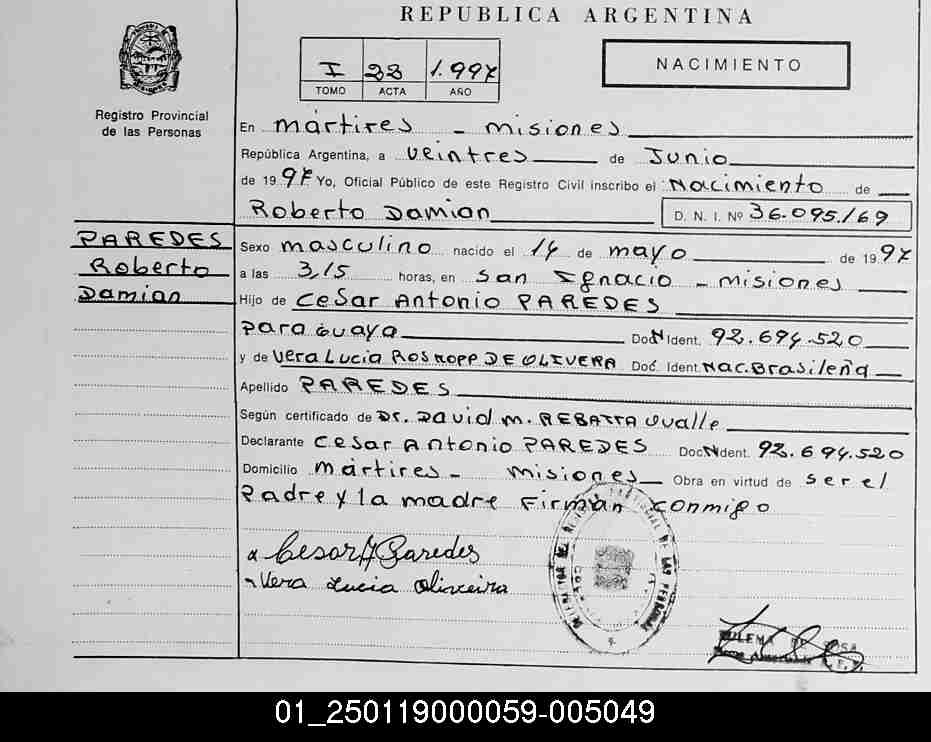 REPUBLICA ARGENTINA
NACIMIENTO
I 23 1.997
TOMO ACTA AÑO
Registro Provincial
de las Personas
En mártires - misiones
República Argentina, a veintres de Junio
de 1997 Yo, Oficial Público de este Registro Civil inscribo el Nacimiento de
Roberto Damian D. N. I. Nº 36.095.169
PAREDES
Roberto
Damian
Sexo masculino nacido el 14 de mayo de 1997
a las 3,15 horas, en San Ignacio - misiones
Hijo de Cesar Antonio PAREDES
paraguaya DocN Ident. 92.694.520
y de Vera Lucia ROSKOPP DE OLIVERA Doc. Ident. Nac. Brasileña
Apellido PAREDES
Según certificado de Dr. David M. REBATTA Ovalle
Declarante Cesar Antonio PAREDES DocNdent. 92.694.520
Domicilio mártires - misiones Obra en virtud de ser el
Padre y la madre Firman conmigo
Cesar A Paredes
Vera Lucia Oliveira
01_250119000059-005049